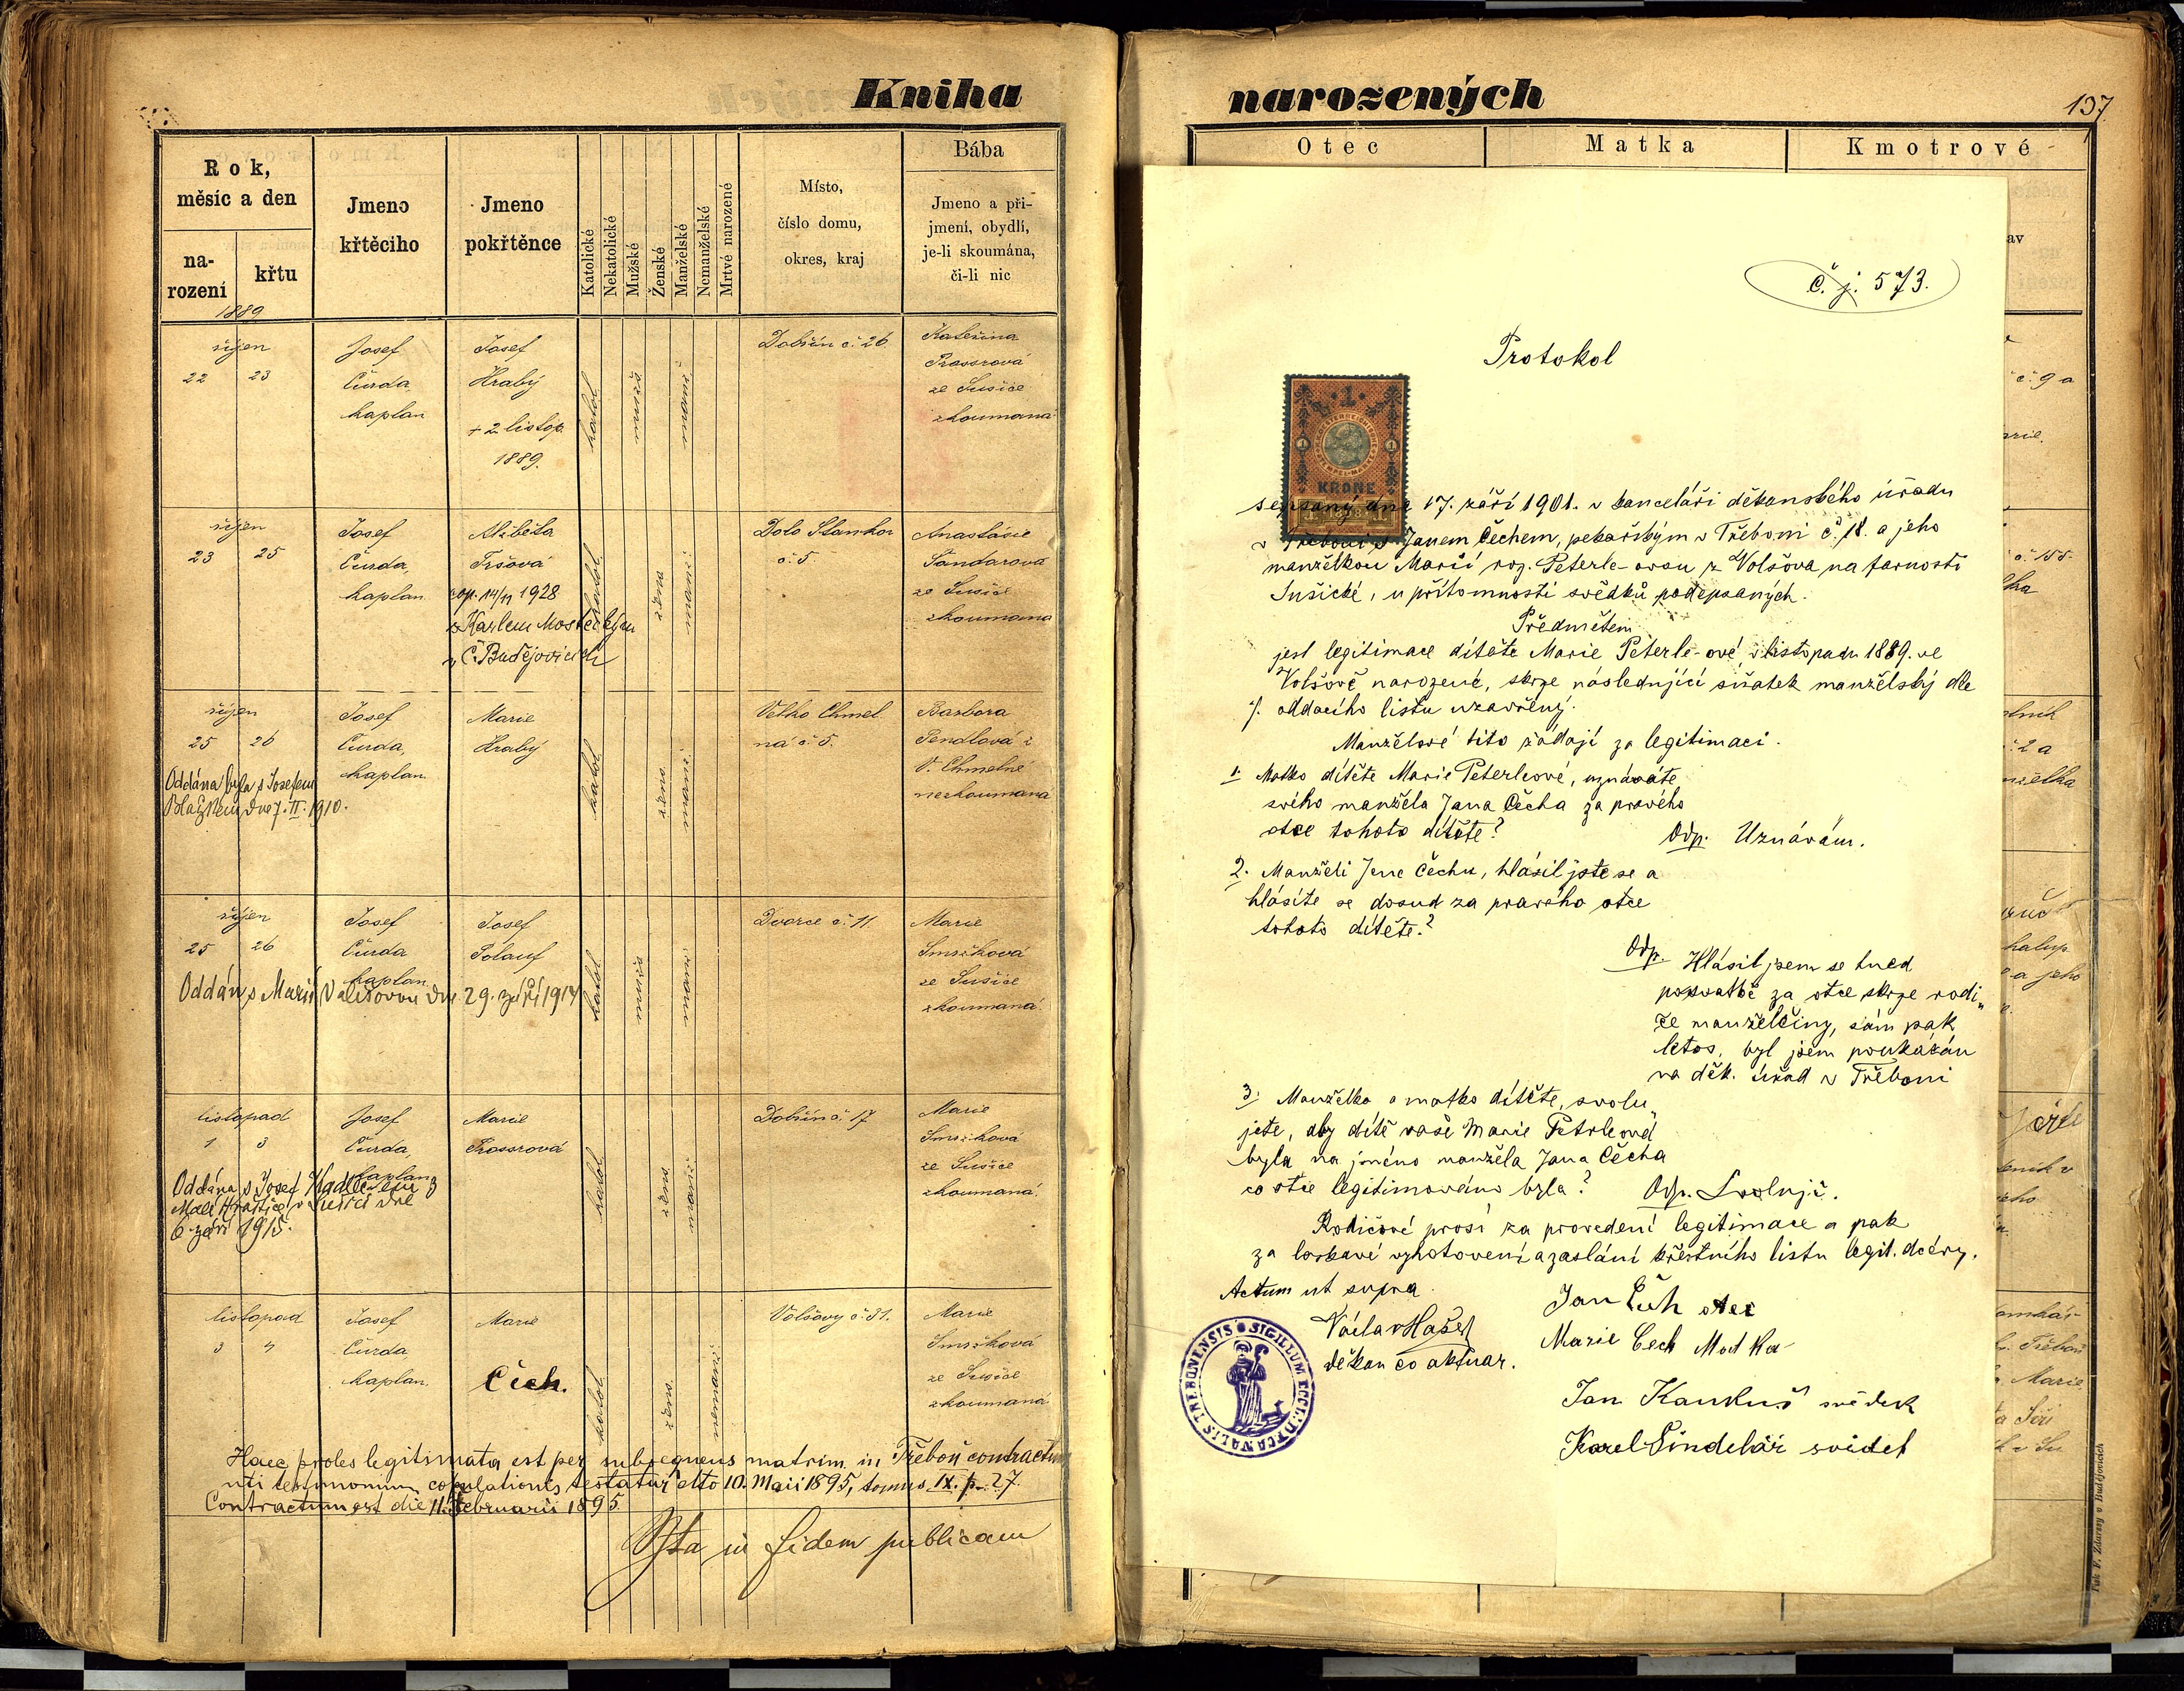 Kniha
Rok,
měsíc a den
na-
rození
křtu
Jmeno
křtěcího
Jmeno
pokřtěnce
Katolické
Nekatolické
Mužské
Ženské
Manželské
Nemanželské
Mrtvé narozené
Místo,
číslo domu,
okres, kraj
Bába
Jmeno a při-
jmení, obydlí,
je-li skoumána,
či-li nic
1889
říjen
22 23
Josef
Čurda,
kaplan
Josef
Hrabý
+ 2 listop.
1889.
katol
muž.
manž.
Dobršín č. 26
Kateřina
ze Sušice
zkoumaná
říjen
23 25
Josef
Čurda,
kaplan
Alžběta
Tršová
cop. 14/11 1928
s Karlem Mosteckým
v Č. Budějovicích
katol
žens.
manž.
Dolo Stankov
č. 5.
Anastásie
Šandarová
ze Sušice
zkoumaná
říjen
25 26
Josef
Čurda,
kaplan
Marie
Hrabý
Oddána byla s Josefem
dne 7. II. 1910.
katol
žens.
manž.
Velko Chmel
ná č. 5.
Barbora
Pendlová z
V. Chmelné
nezkoumaná
říjen
25 26
Josef
Čurda
kaplan
Josef
Polauf
Oddán s Marií dne 29. září 1914
katol
muž.
manž.
Dvorce č. 11.
Marie
Smržková
ze Sušice
zkoumaná.
listopad
1 3
Josef
Čurda,
kaplan
Marie
Oddána s Josef
6. září 1915.
katol
žens.
manž.
Dobršín č. 17
Marie
Smržková
ze Sušice
zkoumaná.
listopad
3 4
Josef
Čurda
kaplan.
Marie
Čech.
katol.
žens.
nemanž.
Volšovy č. 31.
Marie
Smržková
ze Sušice
zkoumaná
Haec proles legitimata est per subsequens matrim. in Třeboň contractum
uti testimonium copulationis testatur dto 10. Maii 1895, tomus IX. p. 27.
Contractum est die 11. Februarii 1895.
Ista in fidem publicam
narozených
137
Otec
Matka
Kmotrové
č. j. 573.
Protokol
1
KRONE
sepsaný dne 17. září 1901. v kanceláři děkanského úřadu
v Třeboni s Janem Čechem, pekařským v Třeboni č. 18. a jeho
manželkou Marií roz. Peterle-ovou z Volšova na farnosti
Sušické, u přítomnosti svědků podepsaných.
Předmětem
jest legitimace dítěte Marie Peterle-ové, v listopadu 1889. ve
Volšově narozené, skrze následující sňatek manželský dle
%. oddacího listu uzavřený.
Manželové tito žádají za legitimaci.
1. Matko dítěte Marie Peterleové, uznáváte
svého manžela Jana Čecha za pravého
otce tohoto dítěte?
Odp. Uznávám.
2. Manželi Jene Čechu, hlásil jste se a
hlásíte se dosud za pravého otce
tohoto dítěte?
Odp. Hlásil jsem se hned
po svatbě za otce skrze rodi„
če manželčiny, sám pak
letos, byl jsem poukázán
na děk. úřad v Třeboni
3. Manželko a matko dítěte, svolu„
jete, aby dítě vaše Marie Petrleová
byla na jméno manžela Jana Čecha
co otce legitimováno byla? Odp. Svoluji.
Rodičové prosí za provedení legitimace a pak
za laskavé vyhotovení a zaslání křestního listu legit. dcery.
Actum ut supra.
Jan Čech otec
Václav Hašek
Marie Cech Matka
děkan co aktuar.
Jan svědek
Karel Šindelář svědek
SIGILLUM ECCL. DECANALIS TREBONENSIS
Tisk V. Zdarssy v Budějovicích